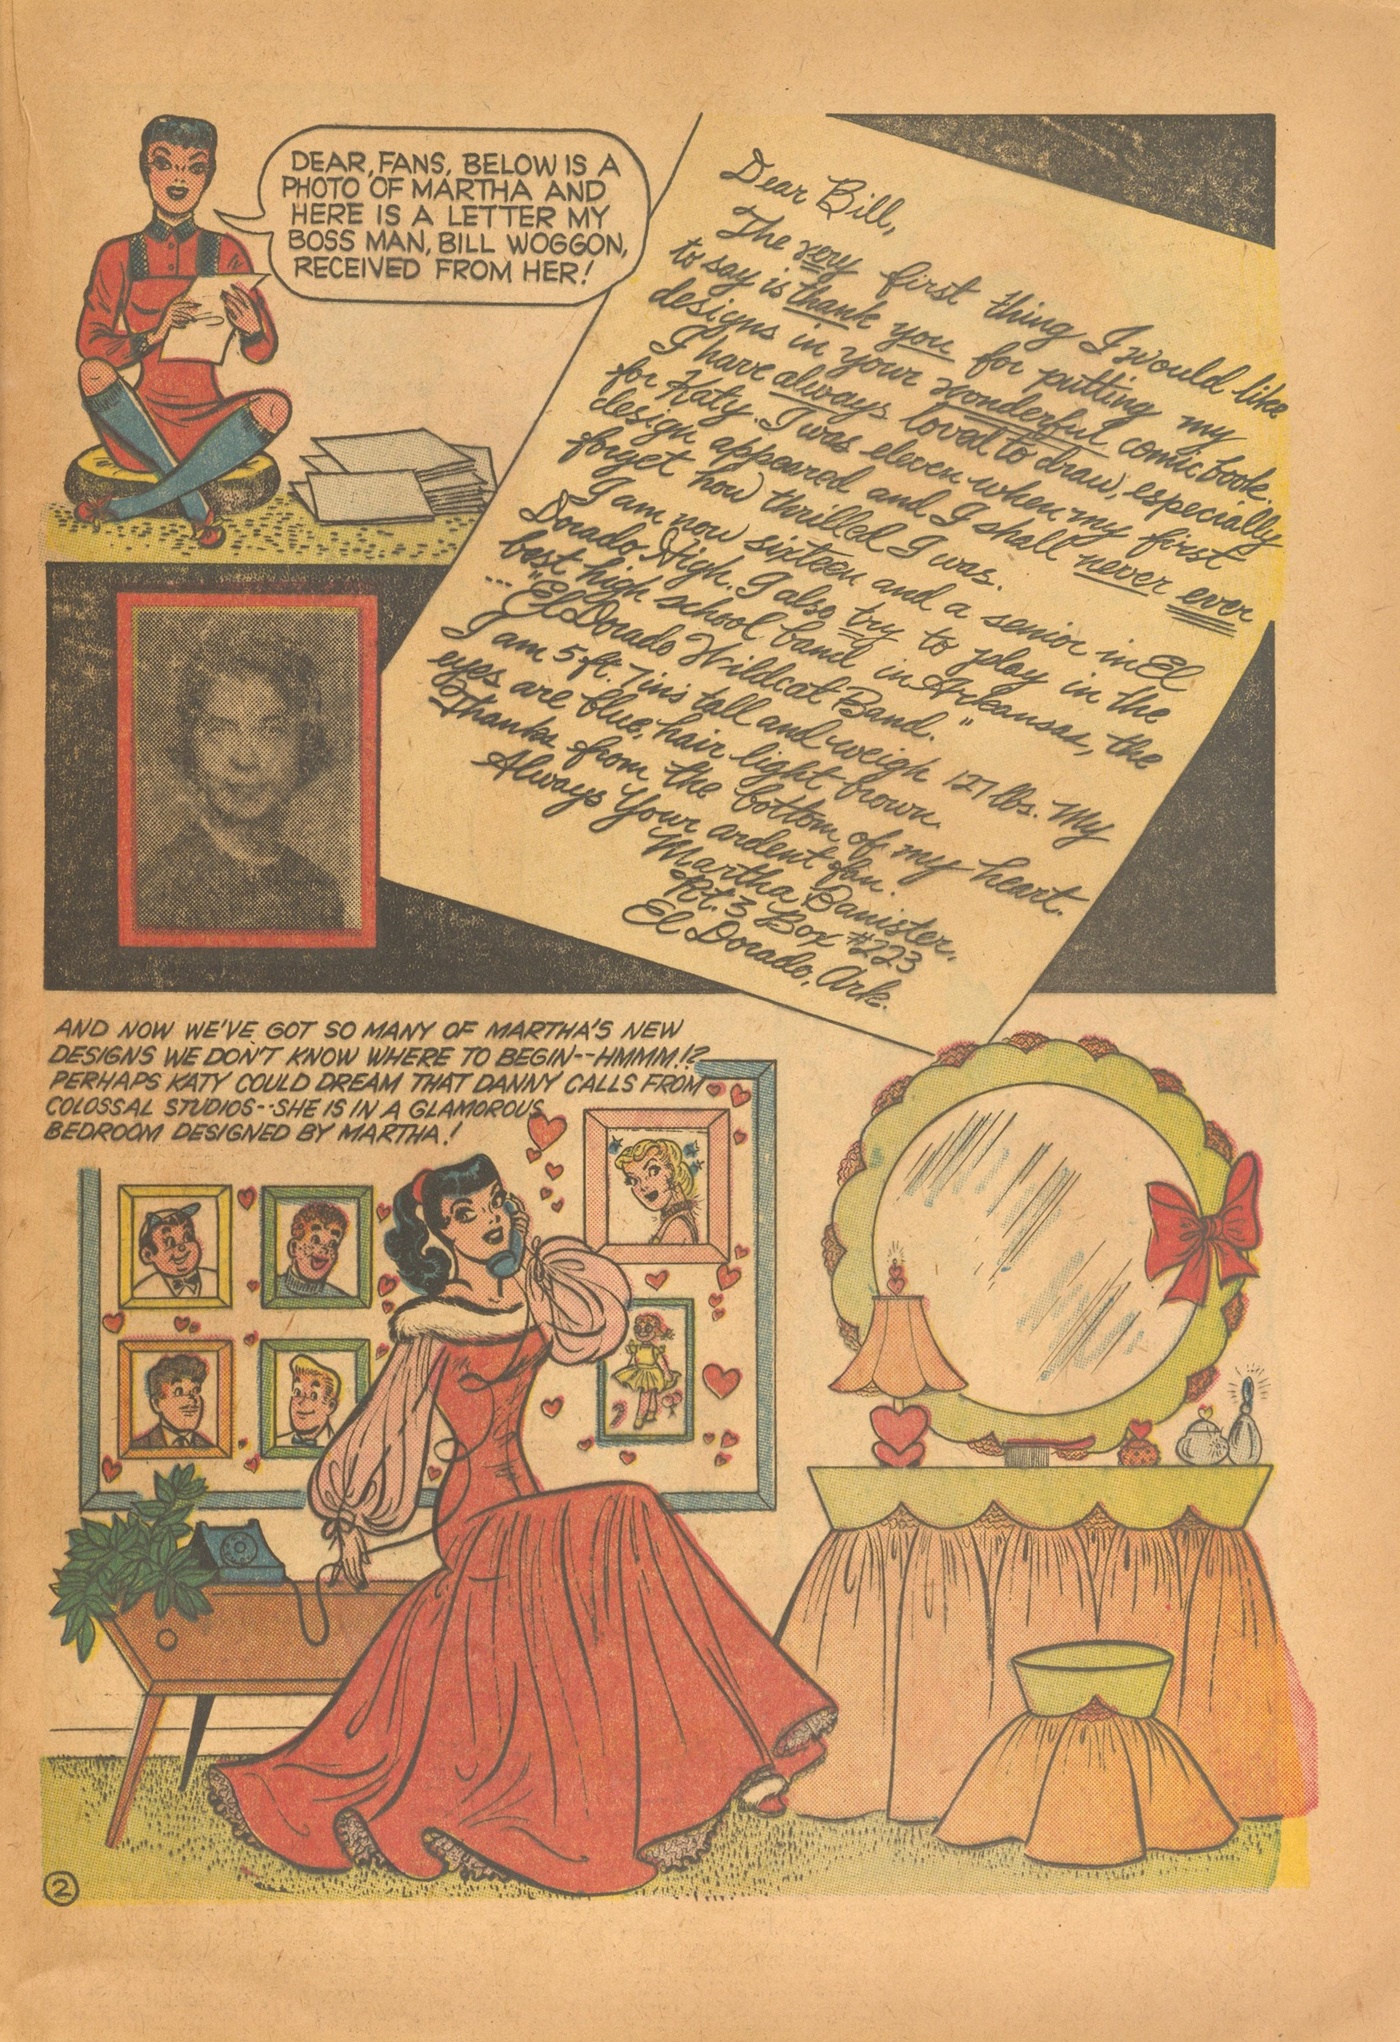 DEAR, FANS, BELOW IS A
PHOTO OF MARTHA AND
HERE IS A LETTER MY
BOSS MAN, BILL WOGGON,
RECEIVED FROM HER!
Dear Bill,
The very first thing I would like
to say is thank you for putting my
designs in your wonderful comic book.
I have always loved to draw, especially
for Katy. I was eleven when my first
design appeared and I shall never ever
forget how thrilled I was.
I am now sixteen and a senior in El
Dorado High. I also try to play in the
best high school band in Arkansas, the
... "El Dorado Wildcat Band."
I am 5 ft. 7 ins tall and weigh 127 lbs. My
eyes are blue, hair light brown.
Thanks from the bottom of my heart.
Always Your ardent fan.
Martha Banister.
Rt. 3 Box #223
El Dorado, Ark.
AND NOW WE'VE GOT SO MANY OF MARTHA'S NEW
DESIGNS WE DON'T KNOW WHERE TO BEGIN--HMMM!?
PERHAPS KATY COULD DREAM THAT DANNY CALLS FROM
COLOSSAL STUDIOS--SHE IS IN A GLAMOROUS
BEDROOM DESIGNED BY MARTHA!
2